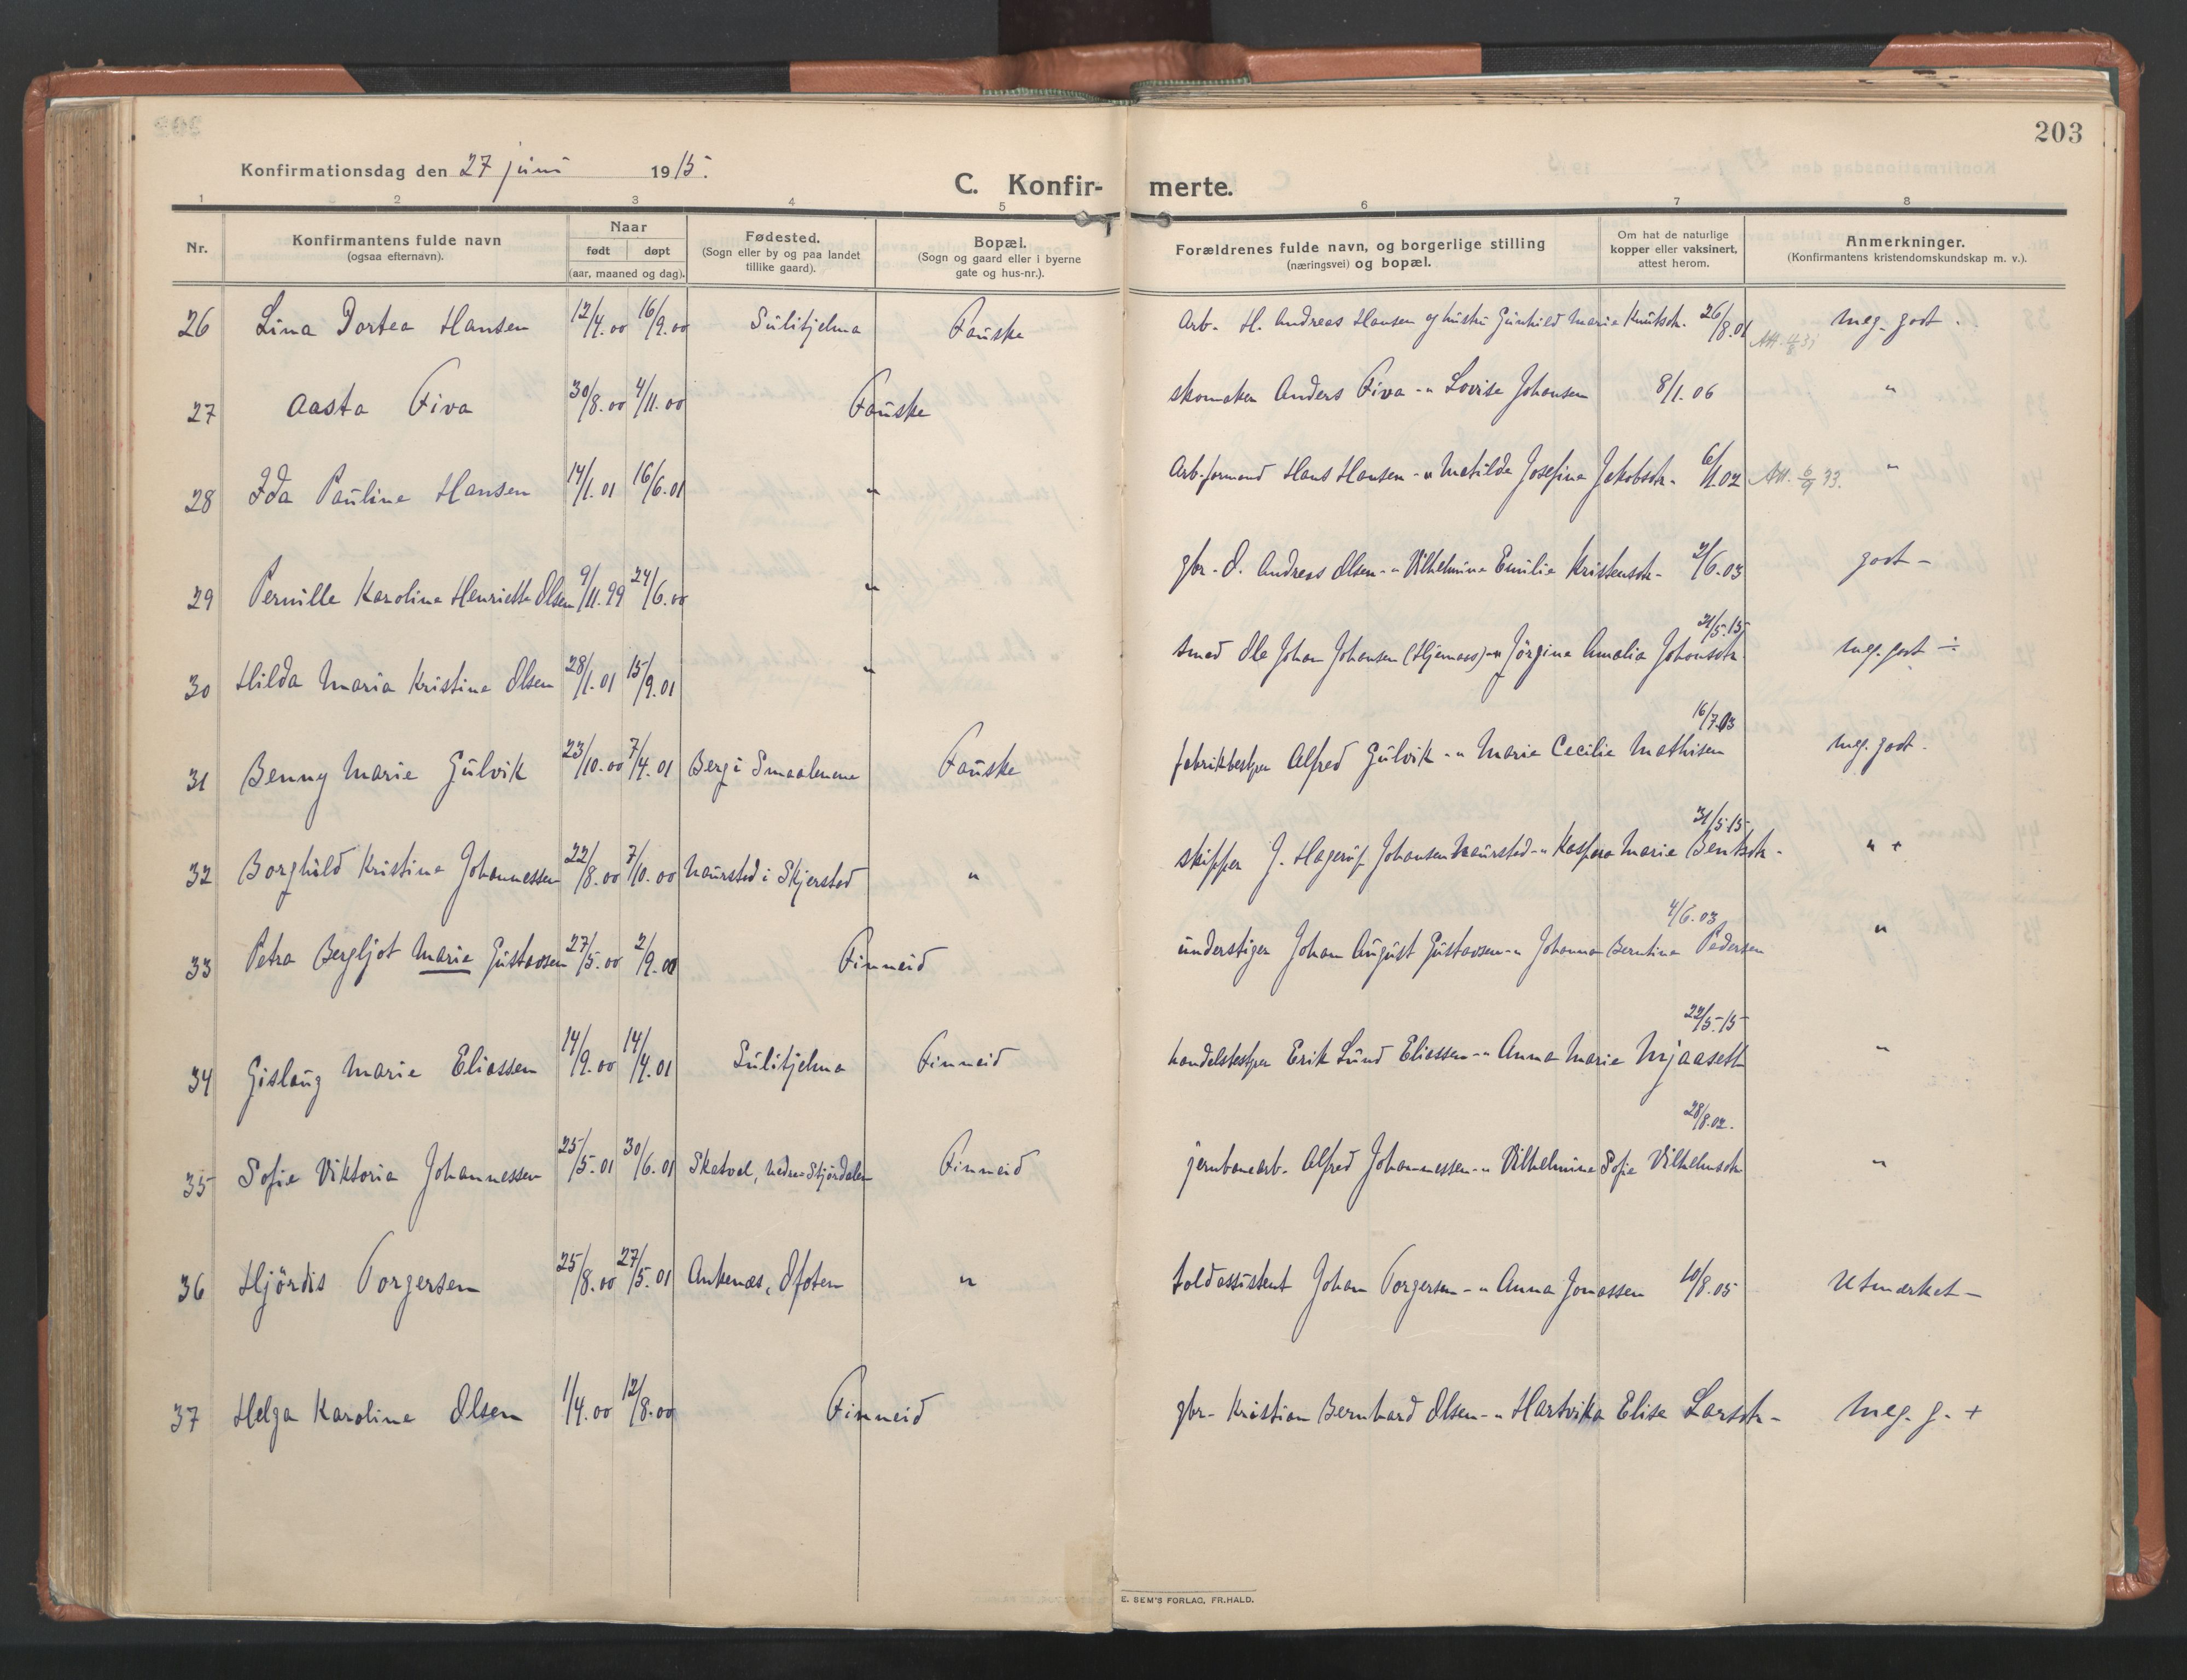 203
Konfirmationsdag den 27 juni 1915.
C. Konfir- merte.
1 2 3 4 5 6 7 8
Nr. Konfirmantens fulde navn (ogsaa efternavn). Naar født døpt (aar, maaned og dag). Fødested. (Sogn eller by og paa landet tillike gaard). Bopæl. (Sogn og gaard eller i byerne gate og hus-nr.). Forældrenes fulde navn, og borgerlige stilling (næringsvei) og bopæl. Om hat de naturlige kopper eller vaksinert, attest herom. Anmerkninger. (Konfirmantens kristendomskundskap m. v.).
26 Lina Dortea Hansen 12/4.00 16/9.00 Sulitjelma Fauske Arb. H. Andreas Hansen og hustru Gunhild Marie Knutsdtr. 26/8.01 Att. 4/8 31 meg. godt.
27 Aasta Fiva 30/8.00 4/11.00 Fauske skomaker Anders Fiva -" Lovise Johansen 8/1.06 "
28 Ida Pauline Hansen 14/1.01 16/6.01 " Arb.formand Hans Hansen -" Matilde Josefine Jakobsdtr. 6/1.02 Att. 6/9 33. "
29 Pernille Karoline Henriette Olsen 9/11.99 24/6.00 " gbr. O. Andreas Olsen -" Vilhelmine Emilie Kristensdtr. 2/6.03 godt -
30 Hilda Maria Kristine Olsen 28/1.01 15/9.01 " smed Ole Johan Johansen (Hjemaas) -" Jörgine Amalia Johansdtr. 31/5.15 meg. godt ÷
31 Benny Marie Gulvik 23/10.00 7/4.01 Berg i Smaalenene Fauske fabrikbestyrer Alfred Gulvik -" Marie Cecilie Mathisen 16/7.03 meg. godt.
32 Borghild Kristine Johannessen 22/8.00 7/10.00 Naurstad i Skjerstad " skipper J. Hagerup Johansen Naurstad -" Kaspara Marie Bentsdtr. 31/5.15 " +
33 Petra Bergljot Marie Gustavsen 27/5.00 2/9.00 Finneid understiger Johan August Gustavsen -" Johanna Berntine Pedersen 4/6.03 "
34 Gislaug Marie Eliassen 14/9.00 14/4.01 Sulitjelma Finneid handelsbestyrer Erik Lund Eliassen -" Anna Marie Mjaaseth 22/5.15 "
35 Sofie Viktoria Johannessen 25/5.01 30/6.01 Skatval, Nedre Stjördalen Finneid jernbanearb. Alfred Johannessen -" Vilhelmine Sofie Vilhelmsdtr 28/8.02. "
36 Hjördis Torgersen 25/8.00 27/5.01 Ankenæs, Ofoten " toldassistent Johan Torgersen -" Anna Jonassen 10/8.05 Utmærket -
37 Helga Karoline Olsen 1/4.00 12/8.00 Finneid gbr. Kristian Bernhard Olsen -" Hartvika Elise Larsdtr. Meg. g. +
E. SEM'S FORLAG, FR.HALD.